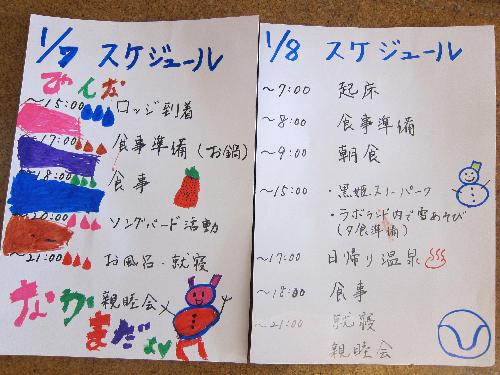 1/7 スケジュール
みんな
〜15:00 ロッジ到着
〜17:00 食事準備(お鍋)
〜18:00 食事
〜20:00 ソングバード活動
〜21:00 お風呂・就寝
親睦会
なかまだよ
1/8 スケジュール
〜7:00 起床
〜8:00 食事準備
〜9:00 朝食
〜15:00 ・黒姫スノーパーク
・ラボランド内で雪あそび
(夕食準備)
〜17:00 日帰り温泉
〜18:00 食事
〜21:00 就寝
親睦会